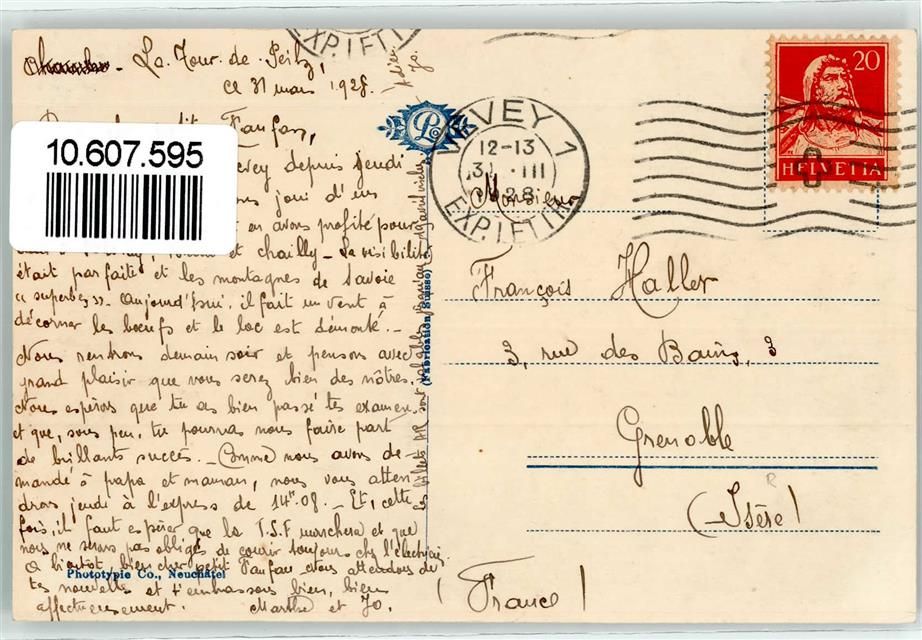 La Tour de Peilz
ce 31 mars 1928.
Fanfan,
10.607.595
vey depuis jeudi
joui d'un
en avons profité pour
et chailly - La visibilité
était parfaite et les montagnes de Savoie
« superbes ». Aujourd'hui, il fait un vent à
décorner les bœufs et le lac est démonté. -
Nous rentrons demain soir et pensons avec
grand plaisir que vous serez bien des nôtres.
Nous espérons que tu as bien passé tes examens
et que, sous peu, tu pourras nous faire part
de brillants succès. - Comme nous avons de-
mandé à papa et maman, nous vous atten
drons jeudi à l'express de 14h.08. - Et, cette
fois, il faut espérer que la T.S.F marchera et que
nous ne serons pas obligés de courir toujours chez l'électricien.
A bientôt, bien cher petit Fanfan nous attendons de
Phototypie Co., Neuchâtel
tes nouvelles et t'embrassons bien, bien
affectueusement. Marthe et Jo.
Adieu
Jo.
les billets AR sont valables
(Fabrication Suisse)
VEVEY 1
12-13
31.III
28
EXP. LETTR.
EXP. LETTR
20
HELVETIA
Monsieur
François Haller
3, rue des Bains, 3
Grenoble
(Isère)
(France)